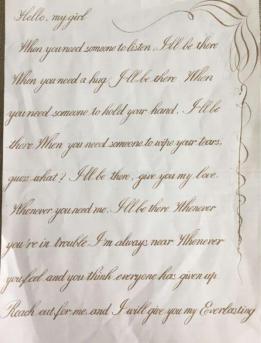 Hello, my girl
When you need someone to listen, I'll be there
When you need a hug, I'll be there When
you need someone to hold your hand, I'll be
there When you need someone to wipe your tears,
guess what? I'll be there, give you my love.
Whenever you need me, I'll be there Whenever
you're in trouble I'm always near Whenever
you feel and you think everyone has given up
Reach out for me and I will give you my Everlasting